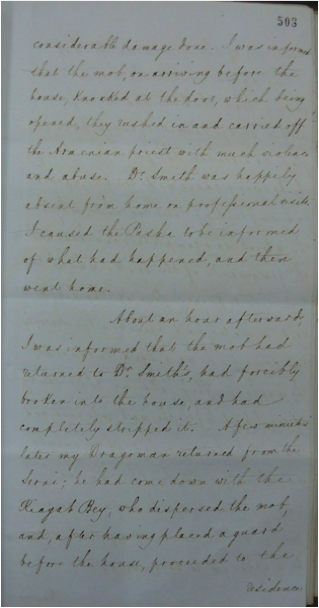 503
considerable damage done. I was informed
that the mob, on arriving before the
house, knocked at the door, which being
opened, they rushed in and carried off
the Armenian priest with much violence
and abuse. Dr. Smith was happily
absent from home on professional visits.
I caused the Pasha to be informed
of what had happened, and then
went home.
About an hour afterwards,
I was informed that the mob had
returned to Dr. Smith's, had forcibly
broken into the house, and had
completely stripped it. A few minutes
later my Dragoman returned from the
Serai; he had come down with the
Kiagah Bey, who dispersed the mob,
and, after having placed a guard
before the house, proceeded to the
residence